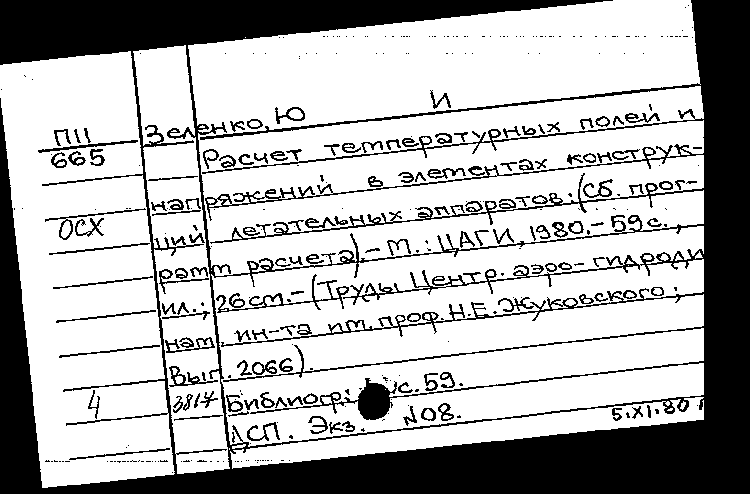 П11
665
ОСХ
4
Зеленко, Ю И
Расчет температурных полей и
напряжений в элементах конструк-
ций летательных аппаратов: (Сб. прог-
рамм расчета). - М.: ЦАГИ, 1980. - 59 с.,
ил.; 26 см. - (Труды Центр. аэро-гидроди
нам. ин-та им. проф. Н.Е. Жуковского;
Вып. 2066).
3817 Библиогр.: с. 59.
ДСП. Экз. N08.
5.XI.80